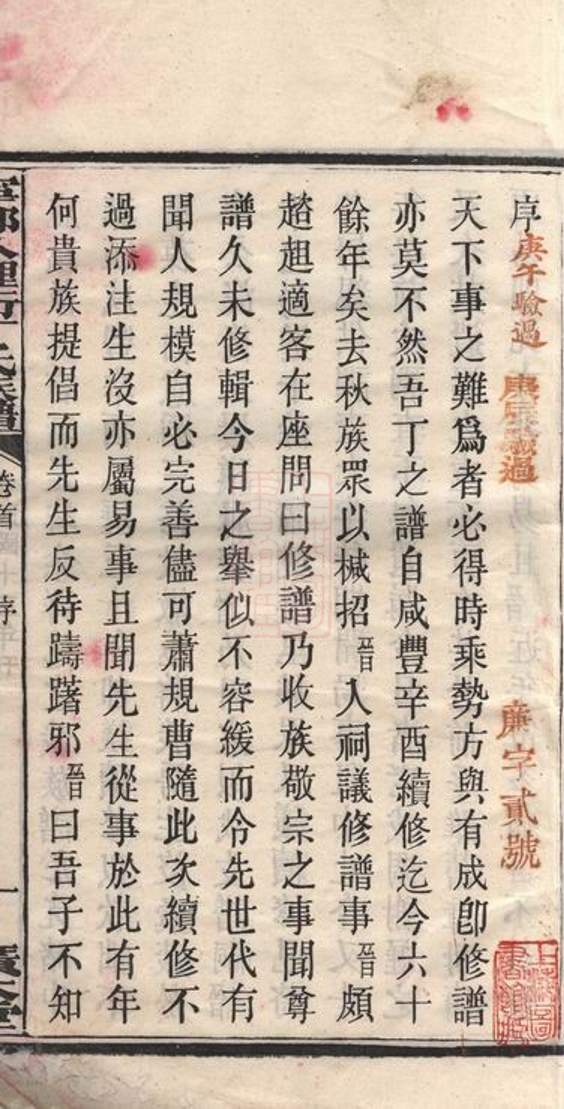 序 庚午驗過 廉字貳號
上海圖書館藏
天下事之難爲者必得時乘勢方與有成卽修譜
亦莫不然吾丁之譜自咸豐辛酉續修迄今六十
餘年矣去秋族眾以椷招晉入祠議修譜事晉頗
趑趄適客在座問曰修譜乃收族敬宗之事聞尊
譜久未修輯今日之舉似不容緩而令先世代有
聞人規模自必完善儘可蕭規曹隨此次續修不
過添注生沒亦屬易事且聞先生從事於此有年
何貴族提倡而先生反待躊躇邪晉曰吾子不知
氏族譜 卷首 序 一